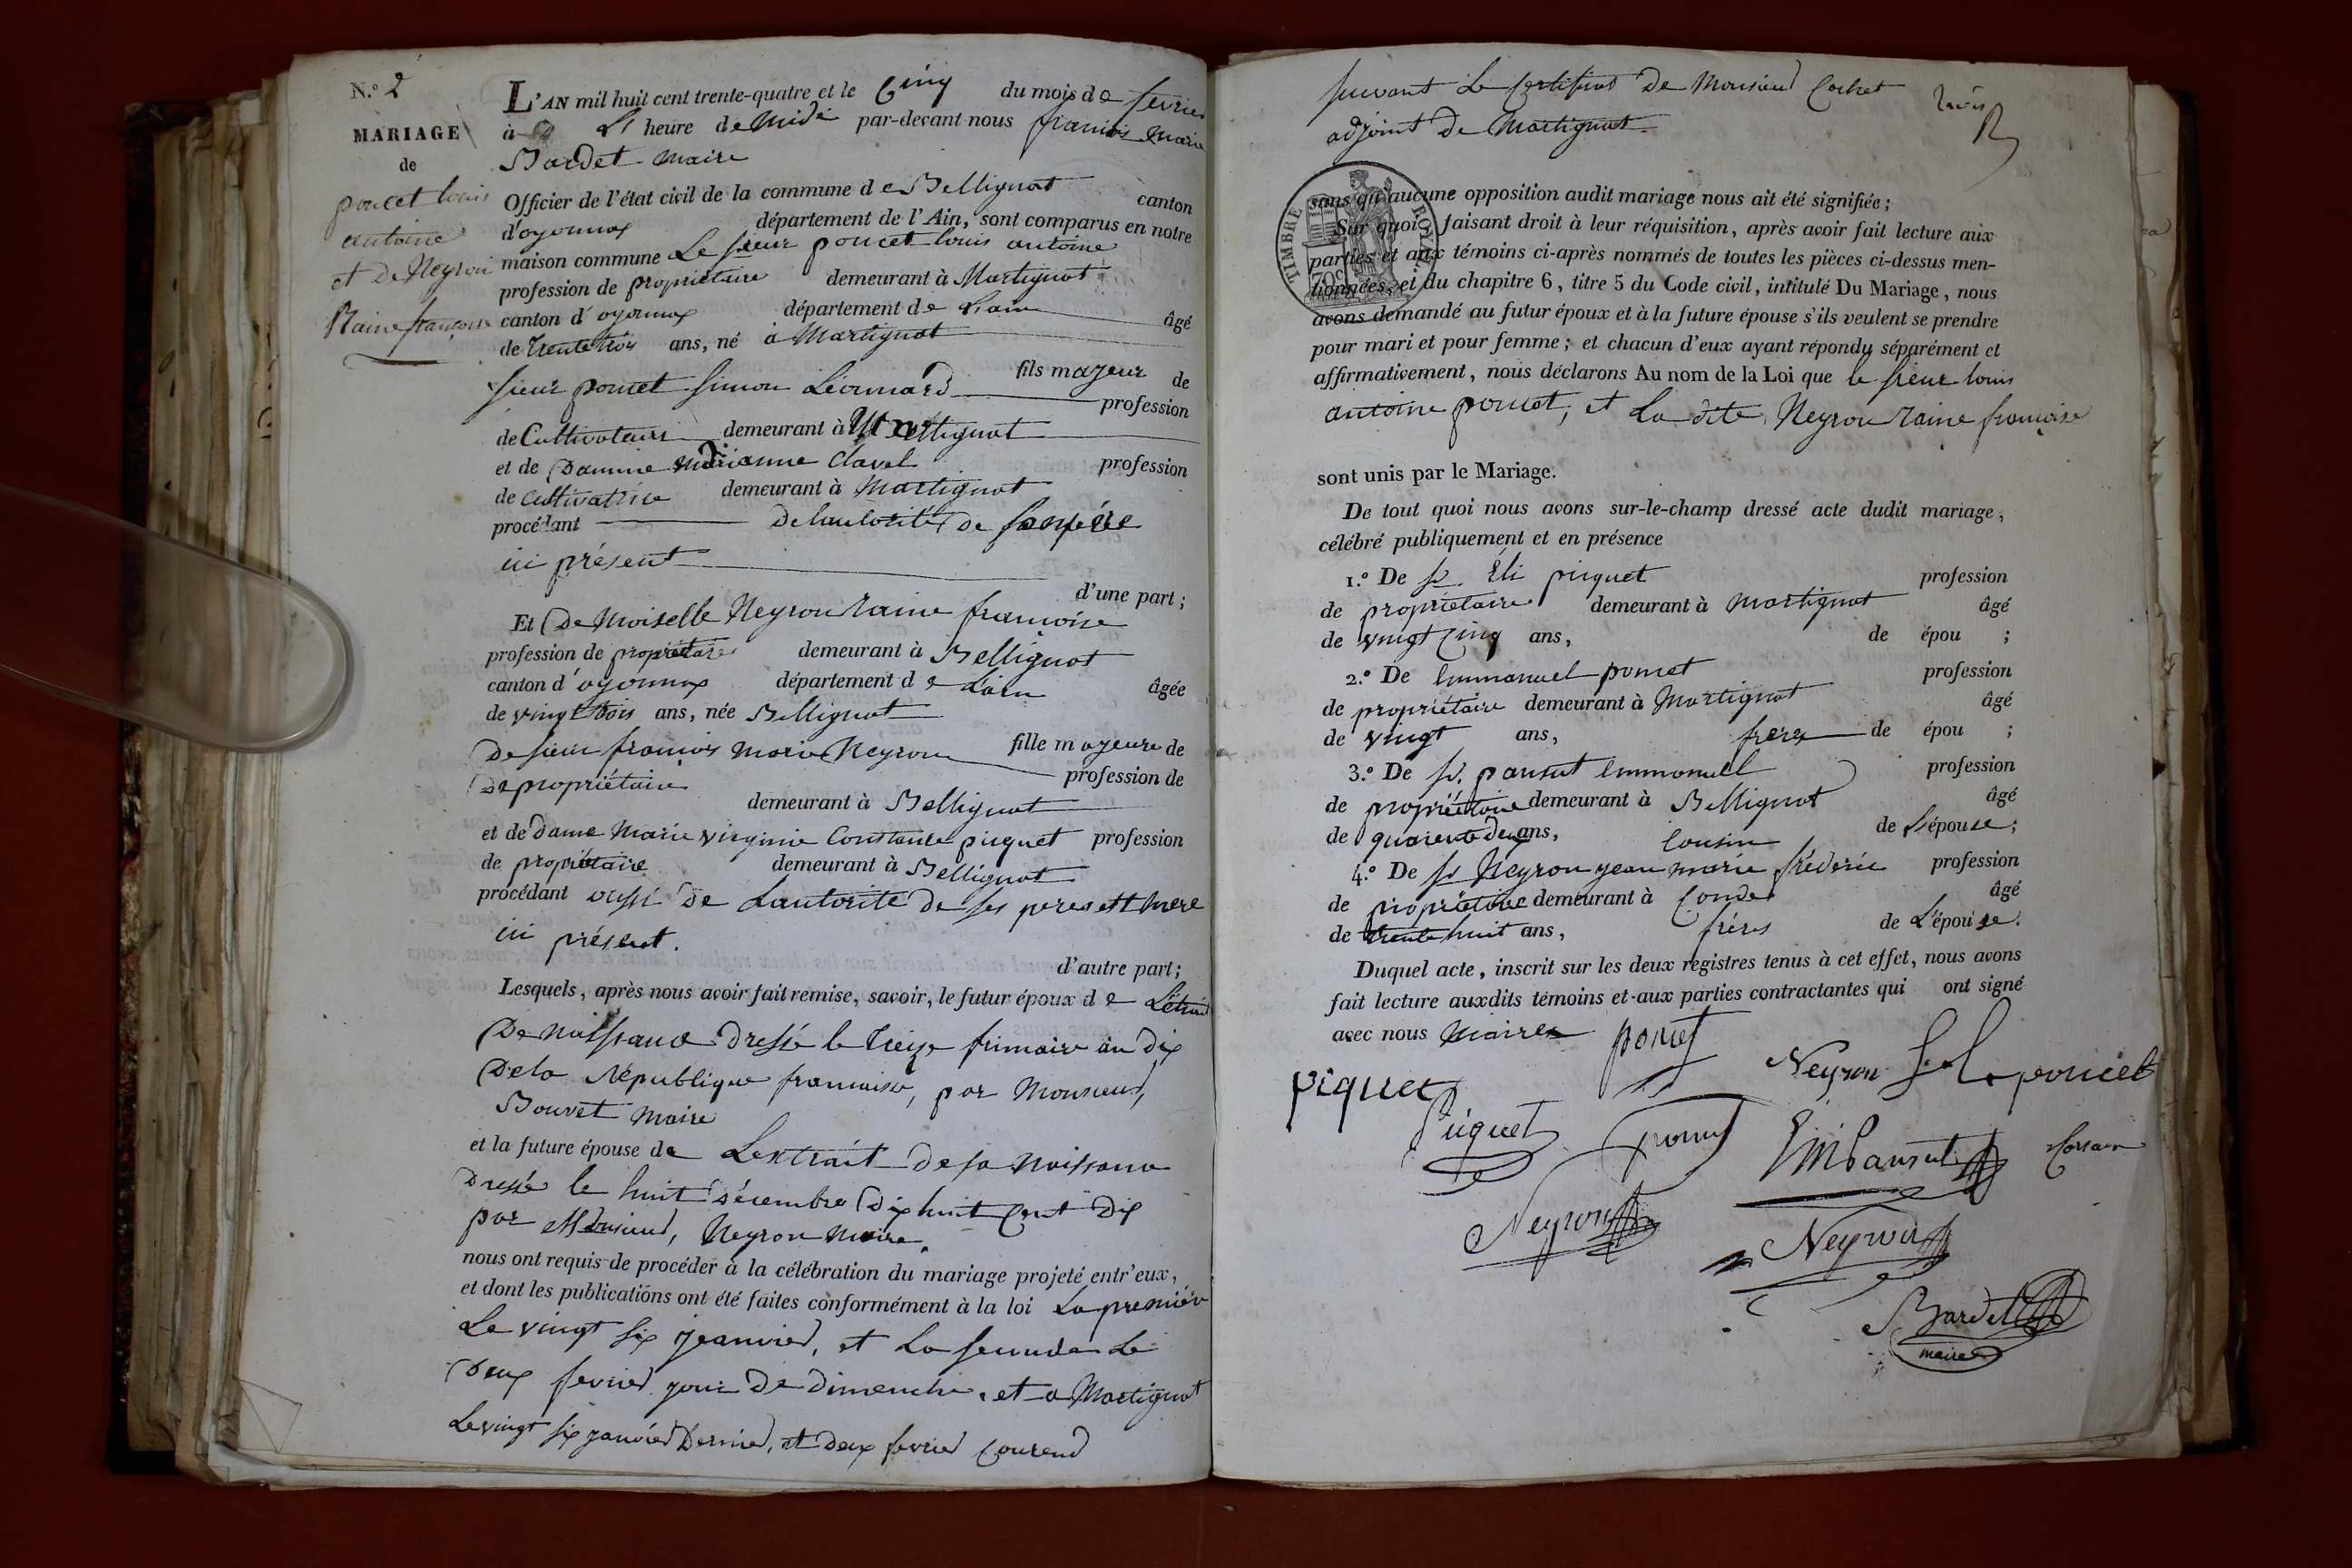 N.º 2
MARIAGE
de
poncet louis
antoine
et de Neyron
Raine françoise
L'AN mil huit cent trente-quatre et le Cinq du mois de fevrier
à L' heure de Midi par-devant nous francois marie
Bardet maire
Officier de l'état civil de la commune de Bellignat canton
d'oyonnax département de l'Ain, sont comparus en notre
maison commune Le sieur poncet louis antoine
profession de propriétaire demeurant à Martignat
canton d'oyonnax département de L'ain âgé
de trente trois ans, né à Martignat
fils majeur de
sieur poncet simon Léonnard profession
de Cultivateur demeurant à Martignat
et de Damme marianne Clavel profession
de cultivatrice demeurant à Martignat
procédant de lautorité de son père
ici présent
d'une part;
Et De Moiselle Neyron raine francoise
profession de propriétaire demeurant à Bellignat
canton d'oyonnax département de L'ain âgée
de vingt trois ans, née Bellignat
fille majeure de
De sieur francois marie Neyron profession de
De propriétaire demeurant à Bellignat
et de Dame Marie virginie Constance piquet profession
de propriétaire demeurant à Bellignat
procédant aussi de Lautorité de ses peres et mere
ici présent.
d'autre part;
Lesquels, après nous avoir fait remise, savoir, le futur époux de
De naissance dressé le treize frimaire an dix
De la république francaise, par Monsieur,
Bouvet maire
et la future épouse de Lextrait de sa naissance
Dressé le huit décembre dix huit Cent dix
par Monsieur, Neyron maire.
nous ont requis de procéder à la célébration du mariage projeté entr'eux,
et dont les publications ont été faites conformément à la loi La premiére
Le vingt six jeanvier, et La seconde Le
Deux fevrier jour de dimenche, et a Martignat
Le vingt six janvier Dernier, et deux fevrier Courend
suivant Le Certificat De Monsieur Cochet
adjoint De Martignat
TIMBRE ROYAL
70c
sans qu'aucune opposition audit mariage nous ait été signifiée;
Sur quoi, faisant droit à leur réquisition, après avoir fait lecture aux
parties et aux témoins ci-après nommés de toutes les pièces ci-dessus men-
tionnées, et du chapitre 6, titre 5 du Code civil, intitulé Du Mariage, nous
avons demandé au futur époux et à la future épouse s'ils veulent se prendre
pour mari et pour femme; et chacun d'eux ayant répondu séparément et
affirmativement, nous déclarons Au nom de la Loi que le sieur louis
antoine poncet, et La dite Neyron raine francoise
sont unis par le Mariage.
De tout quoi nous avons sur-le-champ dressé acte dudit mariage,
célébré publiquement et en présence
1.º De Sr. Eli piquet profession
de propriétaire demeurant à Martignat âgé
de vingt Cinq ans, de épou ;
2.º De Emmanuel poncet profession
de propriétaire demeurant à Martignat âgé
de vingt ans, frere de épou ;
3.º De Sr. pansut Emmanuel profession
de propriétaire demeurant à Bellignat âgé
de quarente deux ans, Cousin de L'épouse;
4.º De Sr Neyron jean marie fréderic profession
de propriétaire demeurant à Condes âgé
de trente huit ans, frères de L'épouse.
Duquel acte, inscrit sur les deux registres tenus à cet effet, nous avons
fait lecture auxdits témoins et aux parties contractantes qui ont signé
avec nous Maire
poncet
Neyron
poncet
piquet
Piquet
poncet
Em Pansut
Neyron
Neyron
Bardet
maire